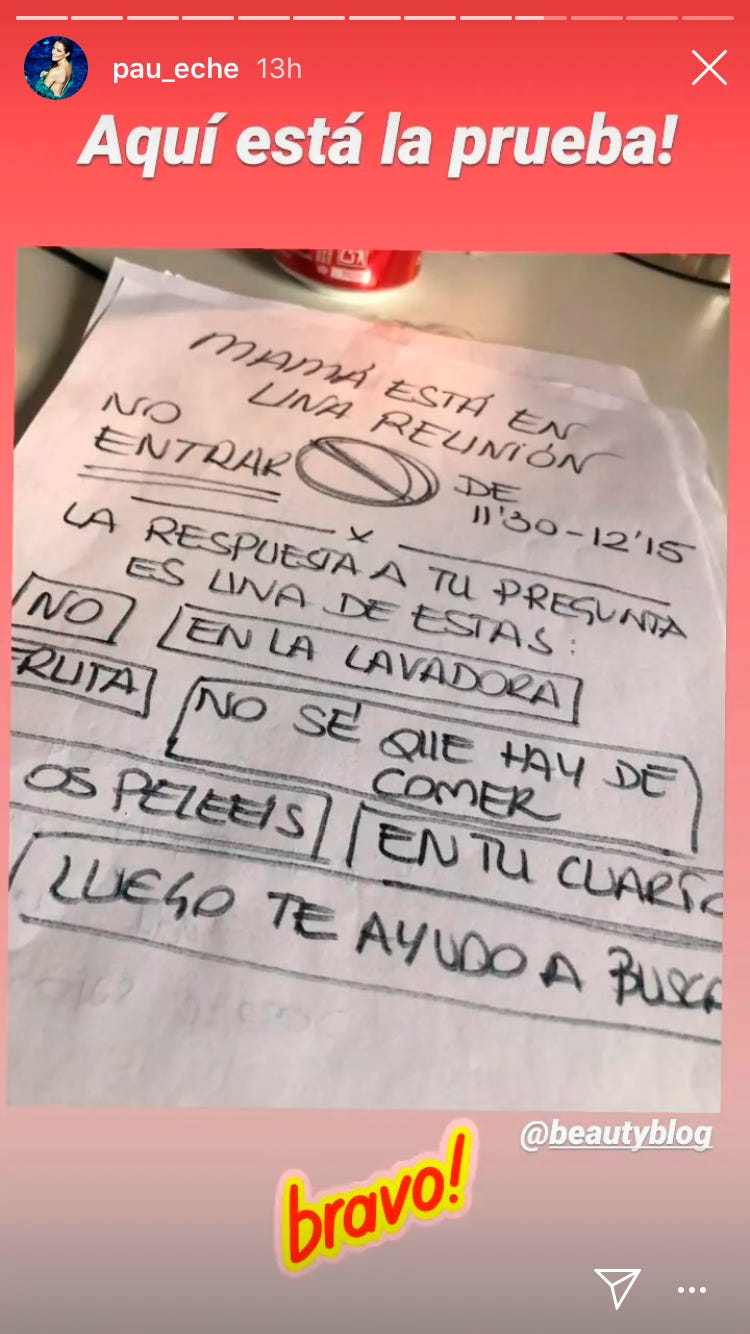 pau_eche 13h
Aquí está la prueba!
MAMÁ ESTÁ EN
UNA REUNIÓN
NO
ENTRAR
DE
11'30-12'15
x
LA RESPUESTA A TU PREGUNTA
ES UNA DE ESTAS:
NO EN LA LAVADORA
FRUTA NO SÉ QUE HAY DE
COMER
OS PELEEIS EN TU CUARTO
LUEGO TE AYUDO A BUSCA
@beautyblog
bravo!